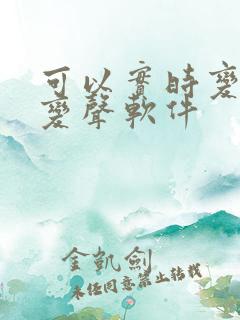 可以實時變
變聲軟件
金凱劍
未經同意禁止轉載